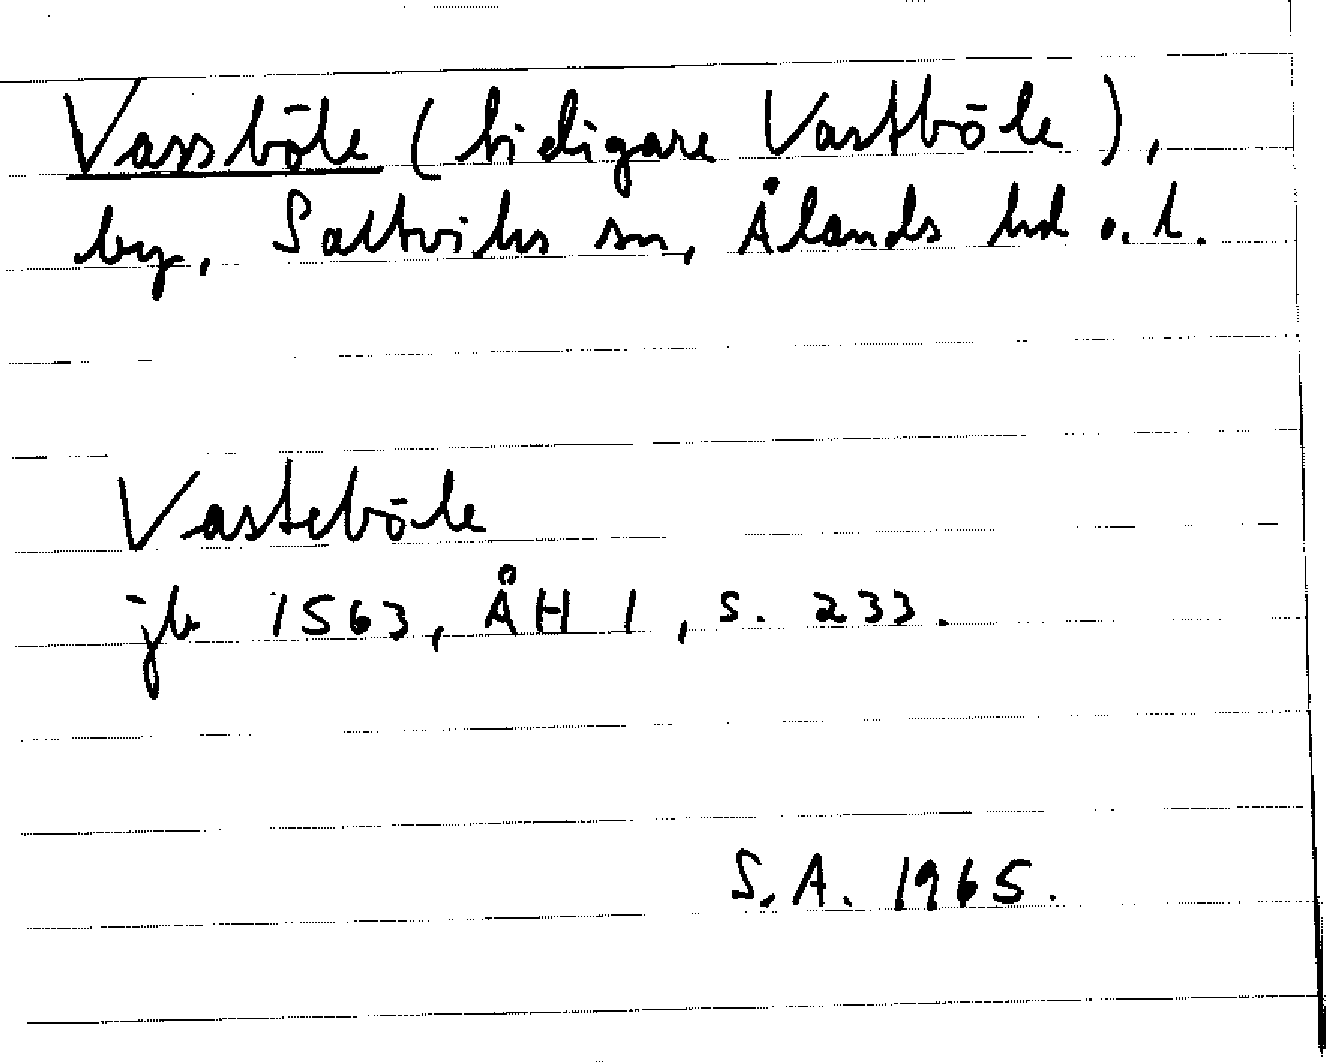 Vassböle (tidigare Vastböle),
by, Saltviks sn, Ålands hd o. l.
Vasteböle
jb 1563, ÅH 1, s. 233.
S.A. 1965.